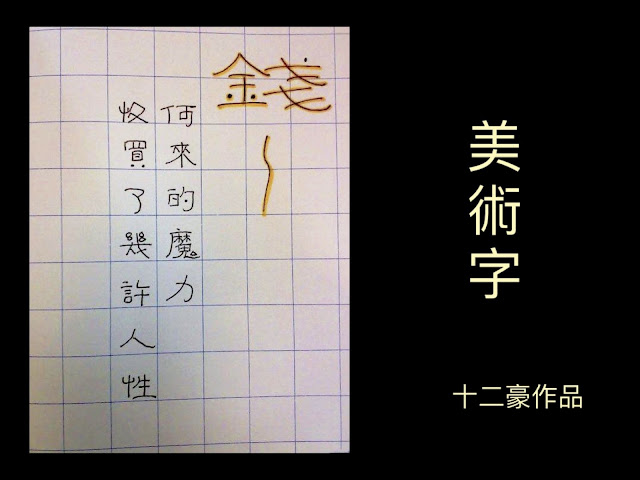 錢
~
何來的魔力
收買了幾許人性
美術字
十二豪作品